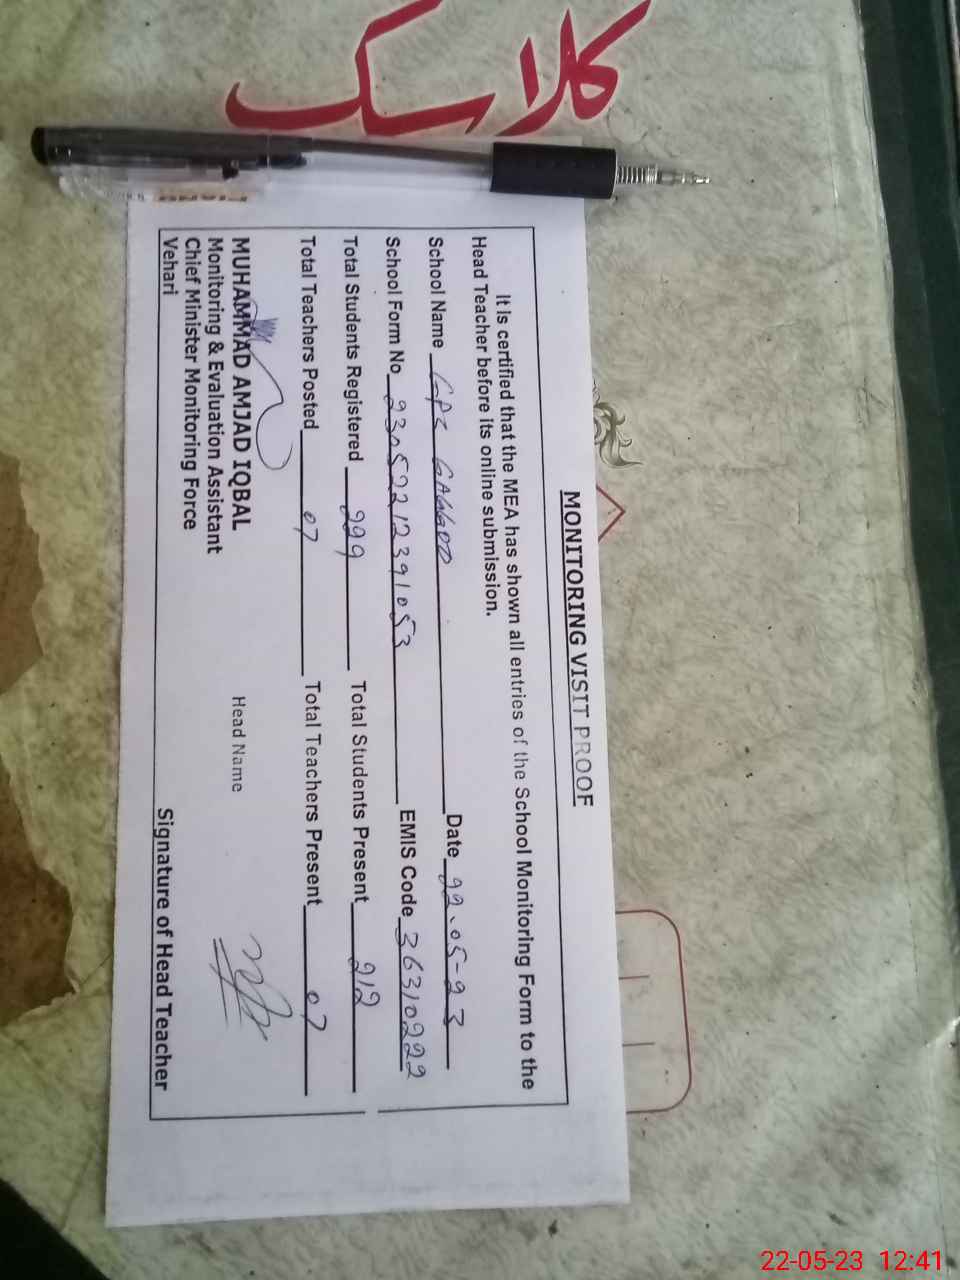 کلاسک
MONITORING VISIT PROOF
It is certified that the MEA has shown all entries of the School Monitoring Form to the
Head Teacher before its online submission.
School Name GPS GAGGOO Date 22-05-23
School Form No 23052212391053 EMIS Code 36310222
Total Students Registered 299 Total Students Present 212
Total Teachers Posted 07 Total Teachers Present 07
MUHAMMAD AMJAD IQBAL Head Name
Monitoring & Evaluation Assistant
Chief Minister Monitoring Force
Vehari Signature of Head Teacher
22-05-23 12:41